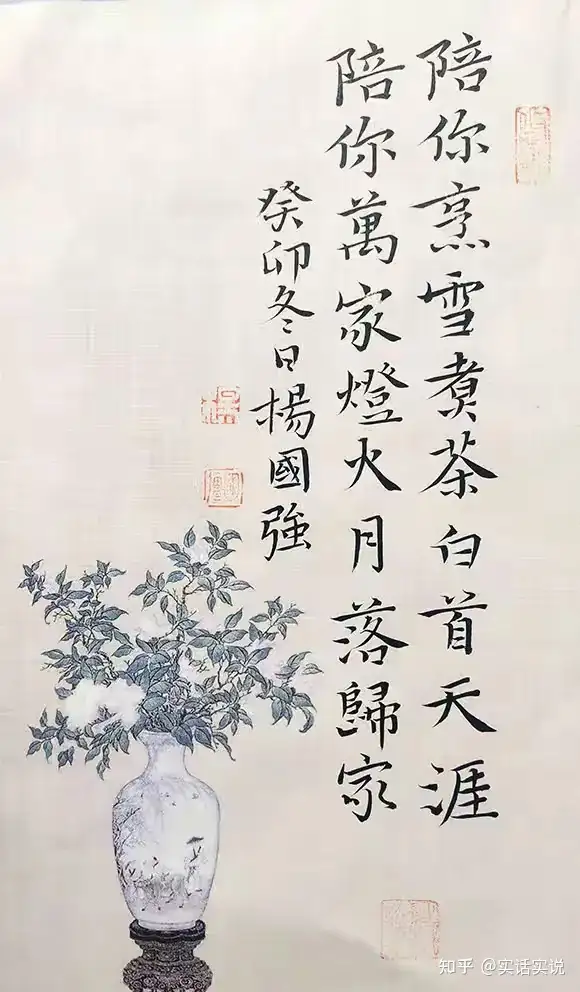 陪你烹雪煮茶白首天涯
陪你萬家燈火月落歸家
癸卯冬日楊國強
知乎 @实话实说